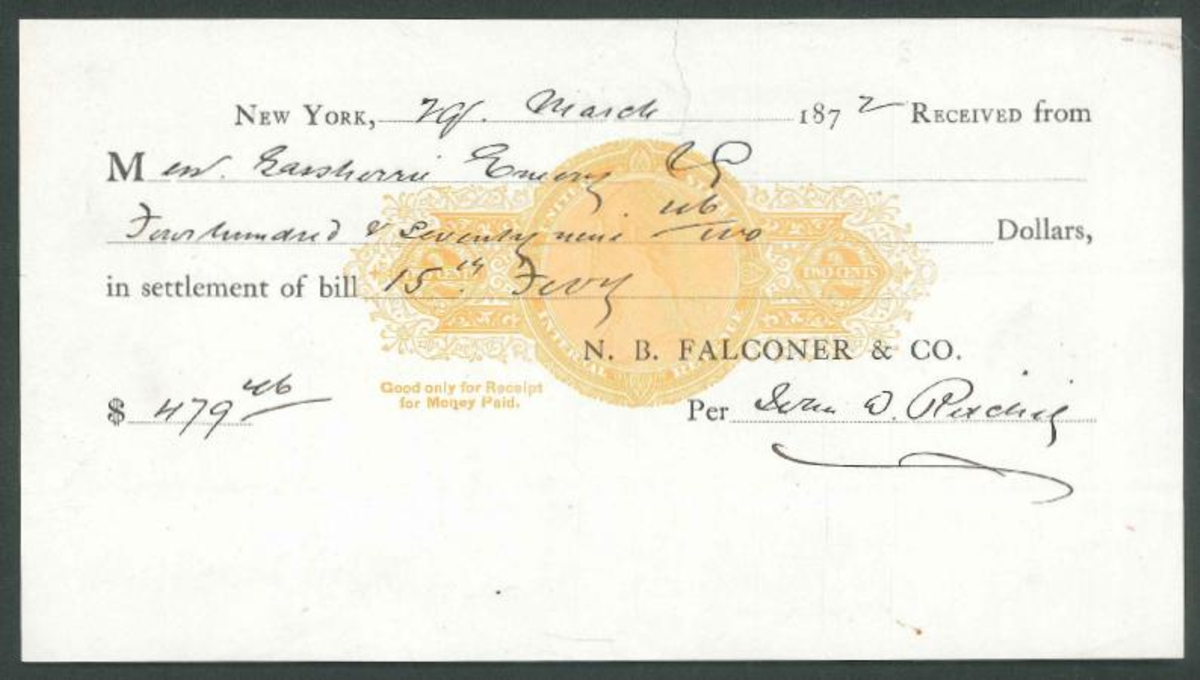 New York, March 1872 Received from
Mess. Emery
Four hundred & seventy nine 46/100 Dollars,
in settlement of bill 15th Feby
UNITED ST
2 CENTS
TWO CENTS
INTERNAL REVENUE
N. B. FALCONER & CO.
Good only for Receipt
for Money Paid.
$ 479 46
Per John D.